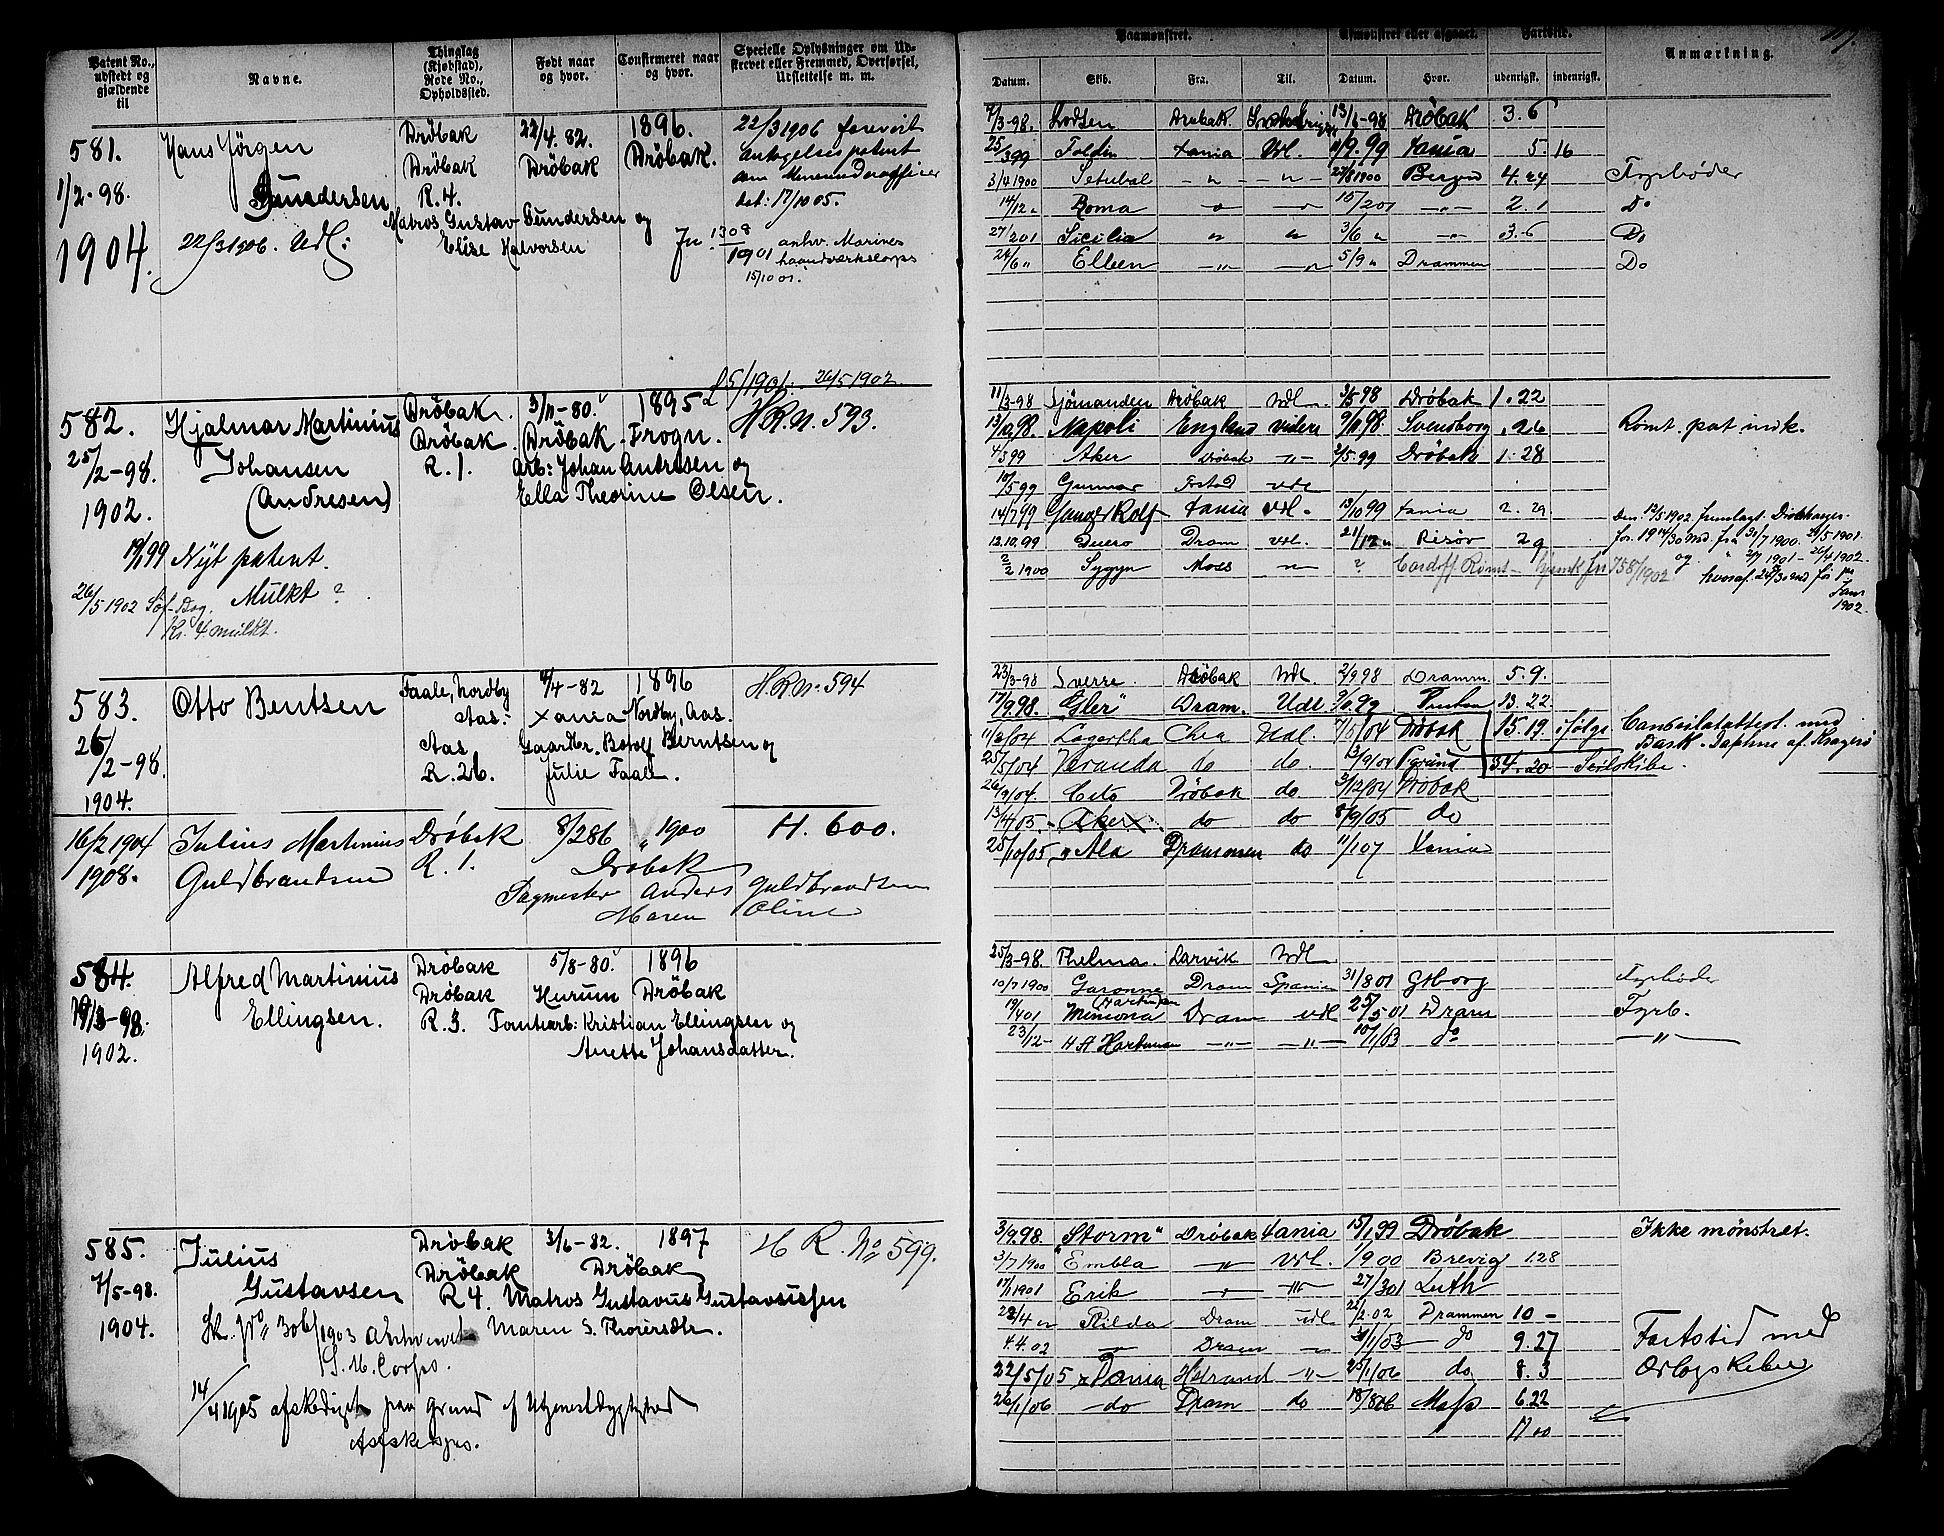 Patent No., udstedt og gjældende til
Navne.
Thinglag (Kjøbstad), Rode No., Opholdssted.
Født naar og hvor.
Confirmeret naar og hvor.
Specielle Oplysninger om Udskrevet eller Fremmed, Overførsel, Udslettelse m. m.
581.
1/2-98.
1904.
Hans Jörgen
Gundersen
22/3 1906. Udl:
Dröbak
Dröbak
R. 4.
22/4. 82.
Dröbak
1896.
Dröbak.
Matros Gustav Gundersen og
Elise Halvorsen
22/3 1906 forevist
antagelsespatent
som Mineunderofficier
dat: 17/10 05.
Jn 1308/1901 anhv. Marines
haandværkscorps
15/10 01.
582.
25/2-98.
1902.
Hjalmar Martinius
Johansen
(Andresen)
19/1 99 Nyt patent.
Mulkt?
26/5 1902
Kr. 4 mulkt.
Dröbak.
Dröbak.
R. 1.
3/11-80.
Dröbak.
1895
Frogn.
Arb: Johan Andresen og
Ella Theorine Olsen.
26/5 1902.
H.R.N. 593.
583.
26/2-98.
1904.
Otto Bentsen
Faale, Nordby
Aas.
Aas
R. 26.
4/4-82
Xania
1896
Nordby, Aas.
Gaardbr. Botolf Berntsen og
Julie Faale.
H.R.N. 594
16/2 1904
1908.
Julius Martinius
Guldbrandsen
Dröbak
R. 1.
8/2 86
1900
Dröbak
Sagmester Anders Guldbrandsen
Maren Oline
H. 600.
584.
19/3-98.
1902.
Alfred Martinius
Ellingsen.
Dröbak
Dröbak
R. 3.
5/8-80.
Hurum
1896
Dröbak
Tomtearb: Kristian Ellingsen og
Anette Johansdatter.
585.
7/5-98.
1904.
Julius
Gustavsen
Dröbak
Dröbak
R 4.
3/6-82.
Dröbak
1897
Matros Gustavus Gustavussen
Maren S. Thorersdtr.
H R. No 599.
306/1903
S. M. Corps.
14/4 1905 afskediget paa Grund af Utjenestdygtighed
Paamønstret.
Afmønstret eller afgaaet.
Fartstid.
Anmærkning.
Datum.
Skib.
Fra.
Til.
Datum.
Hvor.
udenrigsk.
indenrigsk.
7/3-98. Lodsen Dröbak. 13/6-98 Dröbak 3.6
25/3 99 Foldin Xania Udl. 11/9.99 Xania 5 16
3/4 1900 Setubal — " — — " — 23/8 1900 Bergen 4.24 Fyrbøder
14/12 " Roma 10/2 01 2.1 Do
27/2 01 Sicilia " " 3/6 " 3.6 Do
24/6 " Ellen — " — — " 5/9 " Drammen Do
11/3-98 Sjömanden Dröbak Udl. 3/5 98 Dröbak 1.22
13/10 98. Napoli England videre 9/11 98 Svendborg .26 Rømt. pat indk.
4/3 99 Aker Dröbak — " — 2/5.99 Dröbak 1.28
10/5 99 Gunnar Udl
14/7 99 Ganger Rolf Xania Udl. 13/10 99 Xania 2.29
12.10.99 Duero Dram Udl. 21/12 " Risør 29
2/2 1900 Sygyn Moss " ? Cardiff Rømt 758/1902
Den 12/5 1902 fremlagt
31/7 1900. 21/5 1901.
og 2/7 1901 - 26/4 1902.
hvoraf 26/30 md før
1902.
23/3-98 Sverre. Dröbak Udl. 2/9 98 Dramm. 5.9.
17/9 98. "Gler" Dram. Udl 9/6.99 13.22
11/2/04 Lagertha Udl. 7/5/04 Dröbak 15.19. ifølge
Consilatattest. med
Bark "Daphne" af Kragerø
25/5/04 Veranda do do. 3/9/04 54.20 Seilskibe.
26/9/04. Cito Dröbak do 3/12/04 Dröbak
13/4/05. Aker do do 8/9/05 do
25/10/05 Ala Drammen do 11/1 07 Xania
25/3-98. Thelma. Larvik Udl
10/7 1900 Garonne Dram Spanien 31/8 01 Gtborg Fyrbøder
19/4 01 Mimona Dram udl 25/5 01 Dram Fyrb.
23/12- H A Hartman — " — — " — 10/1/03 do — " —
3/9 98. "Storm" Dröbak Xania 15/1 99 Dröbak Ikke mönstret.
3/7 1900 Embla — " — Udl. 1/9 00 Brevig 1.28
17/1 1901 Erik " 27/3 01 Leith
22/4 " Rilda Dram udl 22/2.02 Drammen 10 -
4.4.02 — " — 31/1/03 do 9.27
22/5/05 Xania " 25/1/06 do 8.3
Fartstid med
Orlogskibe
26/1/06 do Dram do 18/8 06 Moss 6.22
17 00